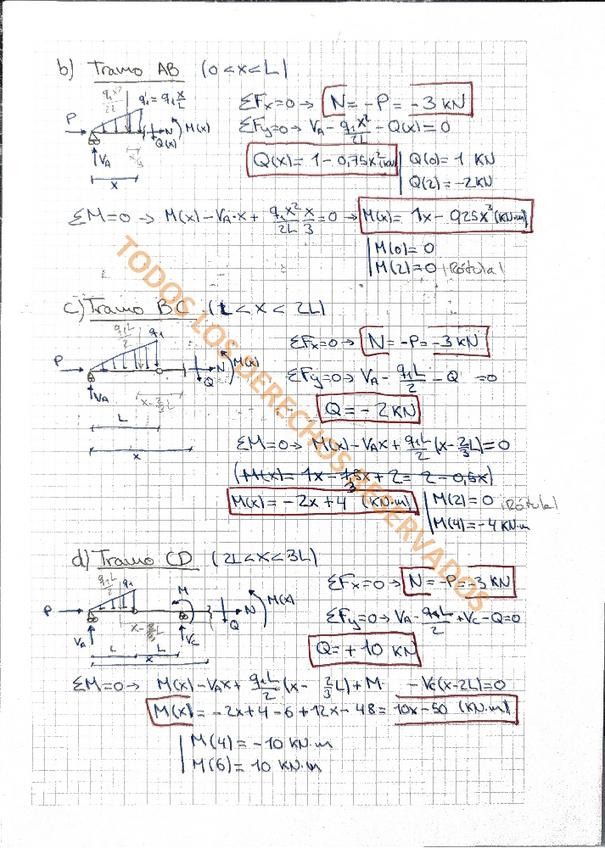 b) Tramo AB (0<x<L)
q₁x²/2L q'₁ = q₁ x/L
P N M(x)
Q(x)
V_A
x/3
x
ΣFx=0 → N = -P = -3 KN
ΣFy=0 → V_A - q₁x²/2L - Q(x) = 0
Q(x) = 1 - 0,75x² (KN) Q(0) = 1 KN
Q(2) = -2KN
ΣM=0 → M(x) - V_A·x + q₁x²/2L x/3 = 0 → M(x) = 1x - 0,25x³ (KN·m)
M(0) = 0
M(2) = 0 ¡Rótula!
c) Tramo BC (L<x<2L)
q₁L/2 q₁
P N M(x)
Q
V_A
x-2/3L
L
x
ΣFx=0 → N = -P = -3 KN
ΣFy=0 → V_A - q₁L/2 - Q = 0
Q = -2 KN
ΣM=0 → M(x) - V_A x + q₁L/2 (x - 2/3 L) = 0
(M(x) = 1x - 1,5x + 2 = 2 - 0,5x)
3
M(x) = -2x + 4 (KN·m) M(2) = 0 ¡Rótula!
M(4) = -4 KN·m
d) Tramo CD (2L<x<3L)
q₁L/2 q₁ M
P N M(x)
Q
V_A x-2/3L V_C
L L
x
ΣFx=0 → N = -P = -3 KN
ΣFy=0 → V_A - q₁L/2 + V_C - Q = 0
Q = +10 KN
ΣM=0 → M(x) - V_A x + q₁L/2 (x - 2/3 L) + M - V_C(x-2L) = 0
M(x) = -2x + 4 - 6 + 12x - 48 = 10x - 50 (KN·m)
M(4) = -10 KN·m
M(6) = 10 KN·m
TODOS LOS DERECHOS RESERVADOS